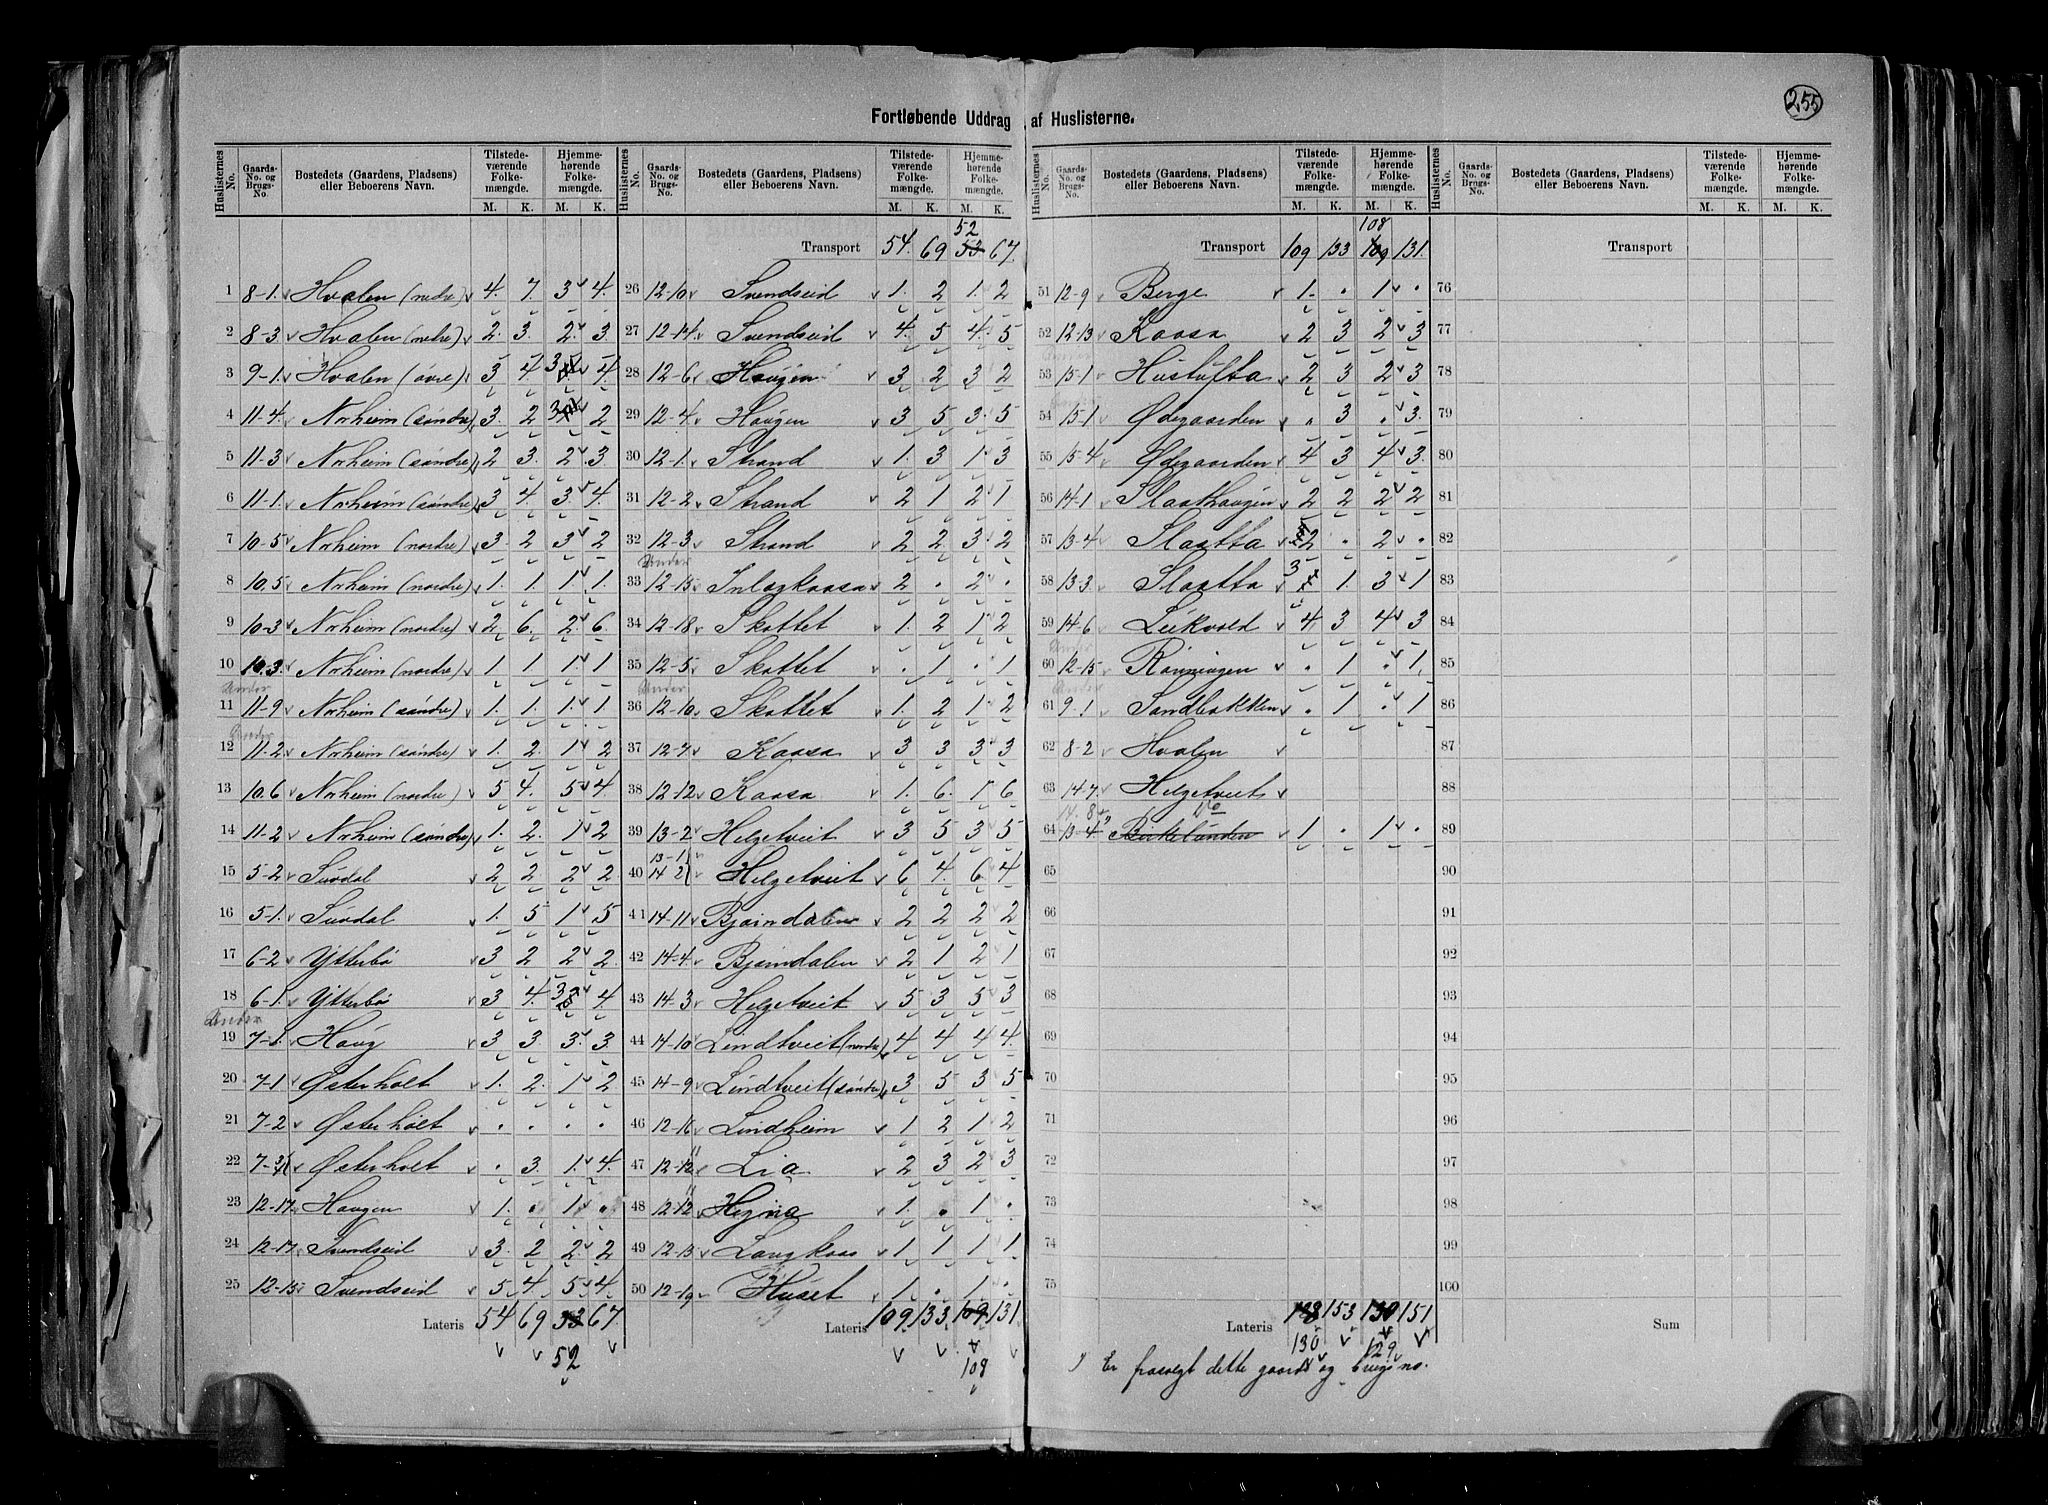 255
Fortløbende Uddrag af Huslisterne.
Huslisternes No. Gaards-No. og Brugs-No. Bostedets (Gaardens, Pladsens) eller Beboerens Navn. Tilstede-værende Folke-mængde. M. K. Hjemme-hørende Folke-mængde. M. K.
1 8-1. Hvalen (nedre) 4. 7. 3 4.
2 8-3. Hvalen (nedre) 2. 3. 2. 3
3 9-1. Hvalen (øvre) 3 4. 3 4.
4 11-4. Norheim (søndre) 3. 2 3 2
5 11-3 Norheim (søndre) 2 3. 2. 3.
6 11-1. Norheim (søndre) 3 4. 3. 4.
7 10-5 Norheim (nordre) 3. 2 3 2
8 10.5 Norheim (nordre) 1. 1. 1 1.
9 10-3 Norheim (nordre) 2 6. 2. 6.
10 10.3. Norheim (nordre) 1 1. 1. 1
Under
11 11-9 Norheim (søndre) 1. 1. 1. 1.
Under
12 11-2 Norheim (søndre) 1. 2. 1 2
13 10.6 Norheim (nordre) 5 4. 5 4.
14 11-2 Norheim (søndre) 1. 2. 1 2
15 5-2 Suvdal 2 2. 2 2.
16 5-1. Suvdal 1. 5 1 5
17 6-2 Ytterbø 3 2 2 2.
18 6-1. Ytterbø 3 4. 3 4.
Under
19 7-1. Haug 3 3 3. 3.
20 7-1 Østerholt 1. 2. 1 2
21 7-2 Østerholt . . . .
22 7-3 Østerholt . 3. 1. 4.
23 12-17 Haugen 1. . 1. .
24 12-17 Svendseid 3. 2 2. 2
25 12-15 Svendseid 5. 4. 5 4.
Lateris 54 69 53 67
52
Transport 54. 69 52 53 67.
26 12-10 Svendseid 1. 2 1. 2
27 12-14. Svendseid 4. 5 4. 5
28 12-6 Haugen 3 2 3 2
29 12-4. Haugen 3 5 3. 5
30 12-1. Strand 1. 3 1 3
31 12-2 Strand 2 1 2 1
32 12-3 Strand 2 2 3 2
Under
33 12-15 Inlagkaasa 2 . 2 .
34 12-18 Skottet 1. 2 1 2
35 12-5 Skottet . 1 . 1
Under
36 12-10 Skottet 1. 2 1 2
37 12-7 Kaasa 3 3 3 3
38 12-12 Kaasa 1. 6. 1 6
39 13-2 Helgetveit 3 5 3 5
40 13-1 14 2 Helgetveit 6 4. 6 4
41 14-11 Bjørndalen 2 2 2 2
42 14-4. Bjørndalen 2 1 2 1
43 14-3 Helgetveit 5 3 5 3
44 14-10 Lindtveit (nordre) 4 4 4 4
45 14-9 Lindtveit (søndre) 3 5 3 5
46 12-16 Lindheim 1 2 1 2
47 12-12 Lia 2 3 2 3
48 12-12 Hegna 1. . 1 .
49 12-13 Langkaas 1 1 1 1
50 12-19 Huset 1. . 1 .
Lateris 109 133. 109 131
108
Transport 109 133 108 109 131.
51 12-9 Berge 1. . 1 .
52 12-13 Kaasa 2 3 2 3
Under
53 15-1 Hustufta 2 3 2 3
54 15-1 Ødegaarden . 3 . 3.
55 15-4 Ødegaarden 4 3 4 3.
56 14-1 Slaathaugen 2 2 2 2
57 13-4 Slaatta 2 . 2 .
58 13-3 Slaatta 3 1. 3 1
59 14-6 Leikvold 4 3 4 3
Under
60 12-15 Rønningen . 1 . 1.
Under
61 9-1 Sandbakken . 1 . 1
62 8-2 Hvalen
63 14-7. Helgetveit
14. 8 Do
64 13-4 Birkelunden 1 . 1 .
65
66
67
68
69
70
71
72
73
74
75
Lateris 153 130 151
130 129
Er frasolgt dette gaards og brugsno.
Transport
76
77
78
79
80
81
82
83
84
85
86
87
88
89
90
91
92
93
94
95
96
97
98
99
100
Sum